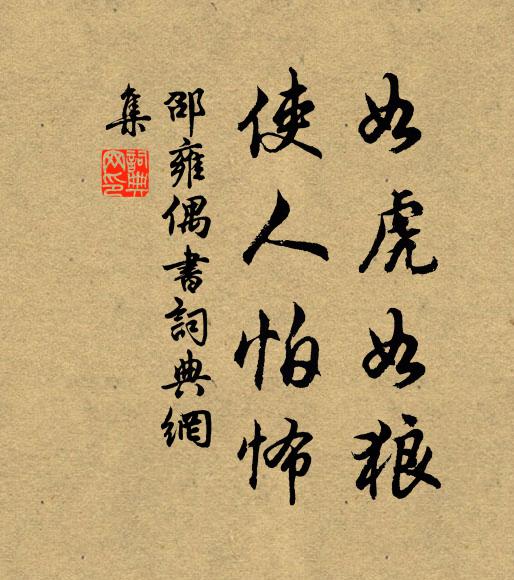 如虎如狼
使人怕怖
邵雍偶書詞典網
集
詞典網印